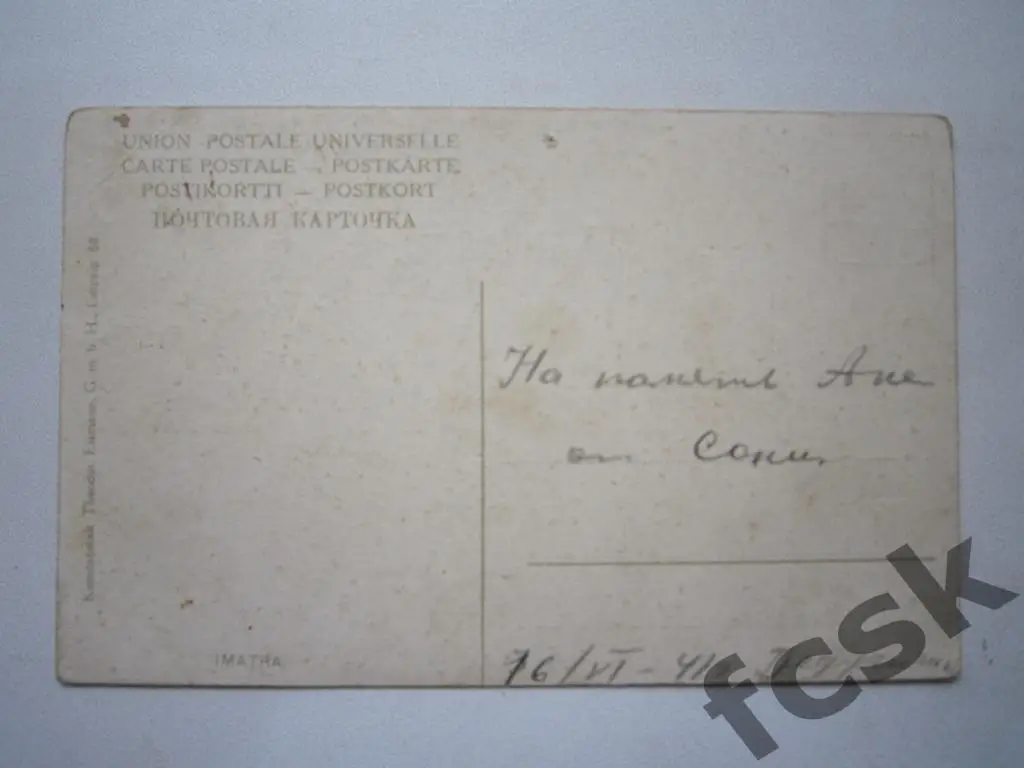 UNION POSTALE UNIVERSELLE
CARTE POSTALE - POSTKARTE
POSTIKORTTI — POSTKORT
ПОЧТОВАЯ КАРТОЧКА
G. m. b. H., Leipzig
На память Ане
от Сони
IMATRA
16/VI - 41г.
fcsk